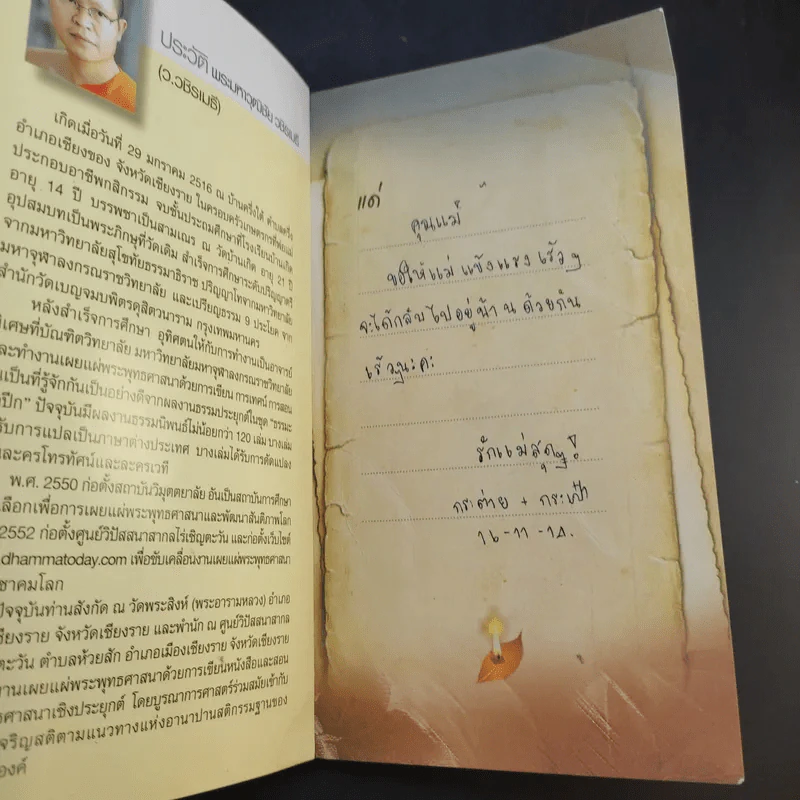 ประวัติ พระมหาวุฒิชัย วชิรเมธี
(ว.วชิรเมธี)
เกิดเมื่อวันที่ 29 มกราคม 2516 ณ บ้านครึ่งใต้ ตำบลครึ่ง
อำเภอเชียงของ จังหวัดเชียงราย ในครอบครัวเกษตรกรที่พ่อแม่
ประกอบอาชีพกสิกรรม จบชั้นประถมศึกษาที่โรงเรียนบ้านเกิด
อายุ 14 ปี บรรพชาเป็นสามเณร ณ วัดบ้านเกิด อายุ 21 ปี
อุปสมบทเป็นพระภิกษุที่วัดเดิม สำเร็จการศึกษาระดับปริญญาตรี
จากมหาวิทยาลัยสุโขทัยธรรมาธิราช ปริญญาโทจากมหาวิทยาลัย
มหาจุฬาลงกรณราชวิทยาลัย และเปรียญธรรม 9 ประโยค จาก
สำนักวัดเบญจมบพิตรดุสิตวนาราม กรุงเทพมหานคร
หลังสำเร็จการศึกษา อุทิศตนให้กับการทำงานเป็นอาจารย์
พิเศษที่บัณฑิตวิทยาลัย มหาวิทยาลัยมหาจุฬาลงกรณราชวิทยาลัย
และทำงานเผยแผ่พระพุทธศาสนาด้วยการเขียน การเทศน์ การสอน
เป็นที่รู้จักกันเป็นอย่างดีจากผลงานธรรมประยุกต์ในชุด "ธรรมะ
ปีก" ปัจจุบันมีผลงานธรรมนิพนธ์ไม่น้อยกว่า 120 เล่ม บางเล่ม
รับการแปลเป็นภาษาต่างประเทศ บางเล่มได้รับการดัดแปลง
ละครโทรทัศน์และละครเวที
พ.ศ. 2550 ก่อตั้งสถาบันวิมุตตยาลัย อันเป็นสถาบันการศึกษา
เลือกเพื่อการเผยแผ่พระพุทธศาสนาและพัฒนาสันติภาพโลก
2552 ก่อตั้งศูนย์วิปัสสนาสากลไร่เชิญตะวัน และก่อตั้งเว็บไซต์
dhammatoday.com เพื่อขับเคลื่อนงานเผยแผ่พระพุทธศาสนา
ชาคมโลก
ปัจจุบันท่านสังกัด ณ วัดพระสิงห์ (พระอารามหลวง) อำเภอ
เชียงราย จังหวัดเชียงราย และพำนัก ณ ศูนย์วิปัสสนาสากล
ตะวัน ตำบลห้วยสัก อำเภอเมืองเชียงราย จังหวัดเชียงราย
งานเผยแผ่พระพุทธศาสนาด้วยการเขียนหนังสือและสอน
ธศาสนาเชิงประยุกต์ โดยบูรณาการศาสตร์ร่วมสมัยเข้ากับ
เจริญสติตามแนวทางแห่งอานาปานสติกรรมฐานของ
องค์
แด่
คุณแม่
ขอให้แม่ แข็งแรง เร็วๆ
จะได้กลับไปอยู่บ้าน ด้วยกัน
เร็วๆนะคะ
รักแม่สุดๆ!
กระต่าย + กระเป๋า
16-11-14.